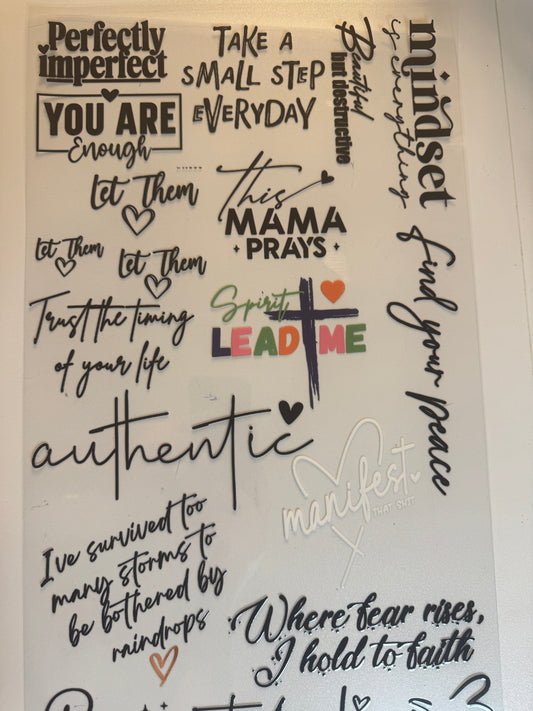 Perfectly
imperfect
TAKE A
SMALL STEP
EVERYDAY
Beautiful
but destructive
mindset
is everything
YOU ARE
Enough
Let Them
This
MAMA
PRAYS
Let Them
Let Them
find your peace
Spirit
LEAD ME
Trust the timing
of your life
authentic
manifest
THAT SHIT
I've survived too
many storms to
be bothered by
raindrops
Where fear rises,
I hold to faith